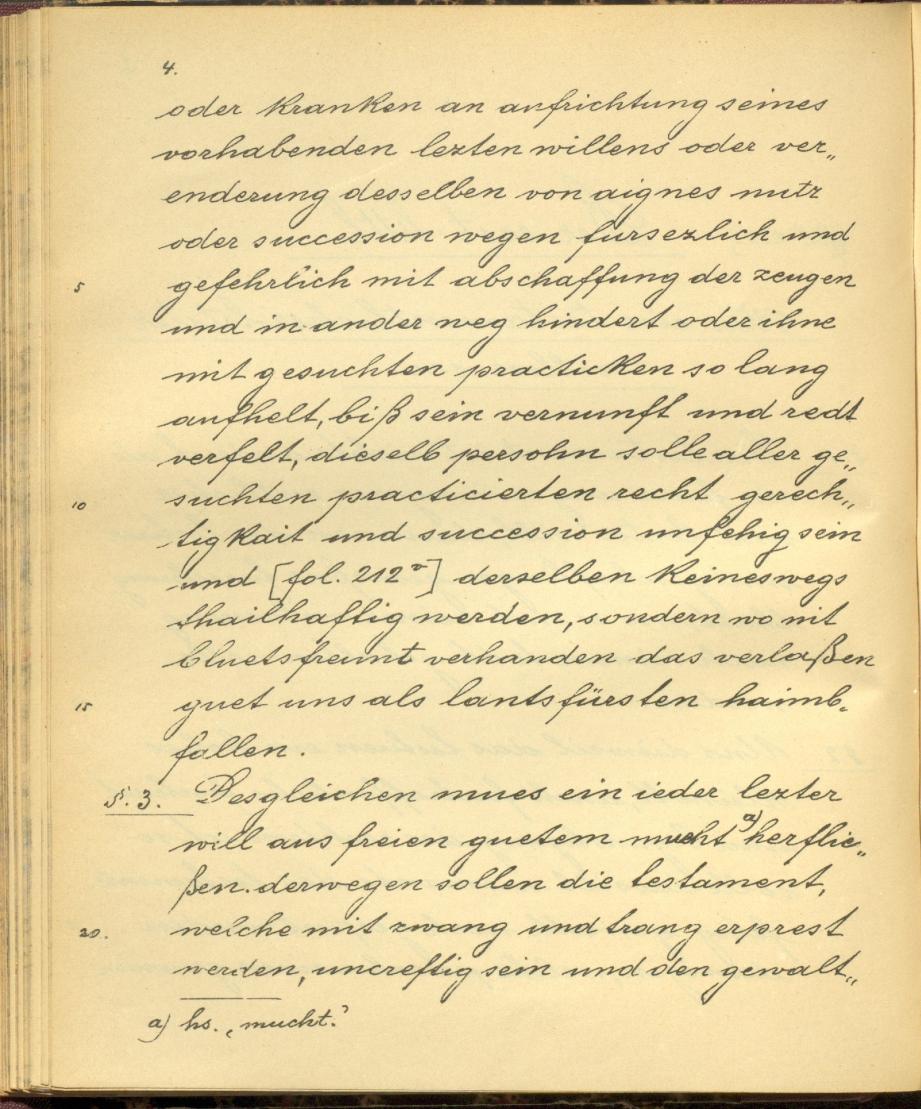 4.
oder kranken an aufrichtung seines
vorhabenden lezten willens oder ver„
enderung desselben von aignes nutz
oder succession wegen fursezlich und
5 gefehrlich mit abschaffung der zeugen
und in ander weg hindert oder ihne
mit gesuchten practicken so lang
aufhelt, biß sein vernunft und redt
verfelt, dieselb persohn solle aller ge„
10 suchten practicierten recht gerech„
tigkait und succession unfehig sein
und [fol. 212v] derselben keineswegs
thailhaftig werden, sondern wo nit
bluetsfreunt verhanden das verlaßen
15 guet uns als lantsfürsten haimb„
fallen.
§. 3. Desgleichen mues ein ieder lezter
will aus freien guetem mucht a) herflie„
ßen. derwegen sollen die testament,
20. welche mit zwang und trang erprest
werden, uncreftig sein und den gewalt„
a) hs. „mucht.“